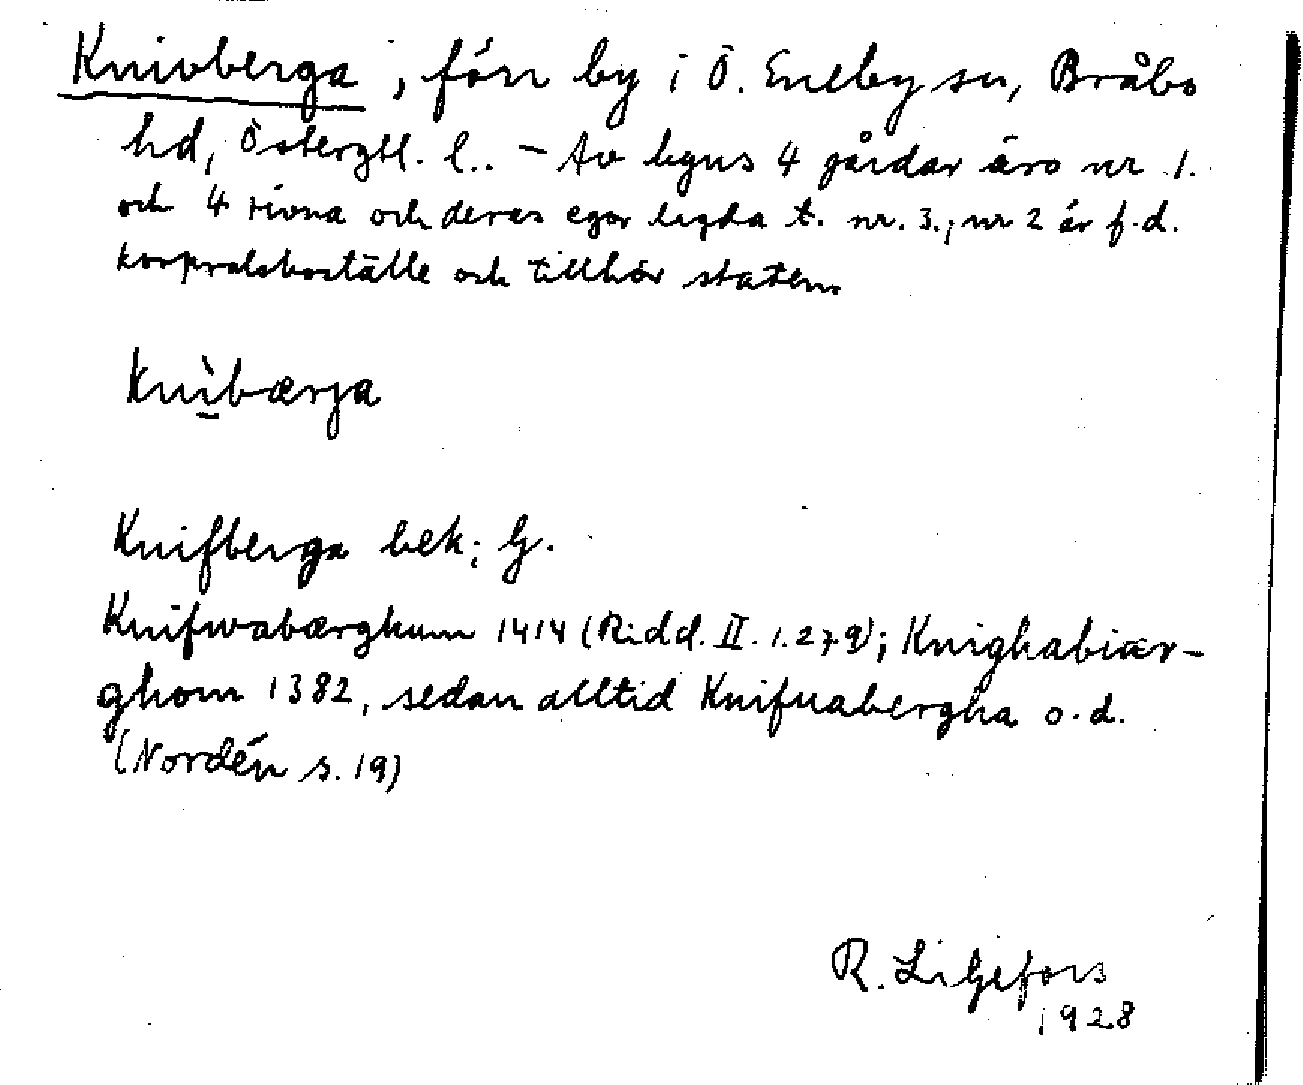 Knivberga, förr by i Ö. Eneby sn, Bråbo
hd, Östergtl. l.. – Av byns 4 gårdar äro nr 1.
och 4 rivna och deras egor lagda t. nr. 3.; nr 2 är f.d.
korpralsboställe och tillhör staten.
Knìbærja
Knifberga bek; G.
Knifwabærghum 1414 (Ridd. II. 1.279); Knighabiær-
ghom 1382, sedan alltid Knifuabergha o.d.
(Nordén s. 19)
R. Liljefors
1928